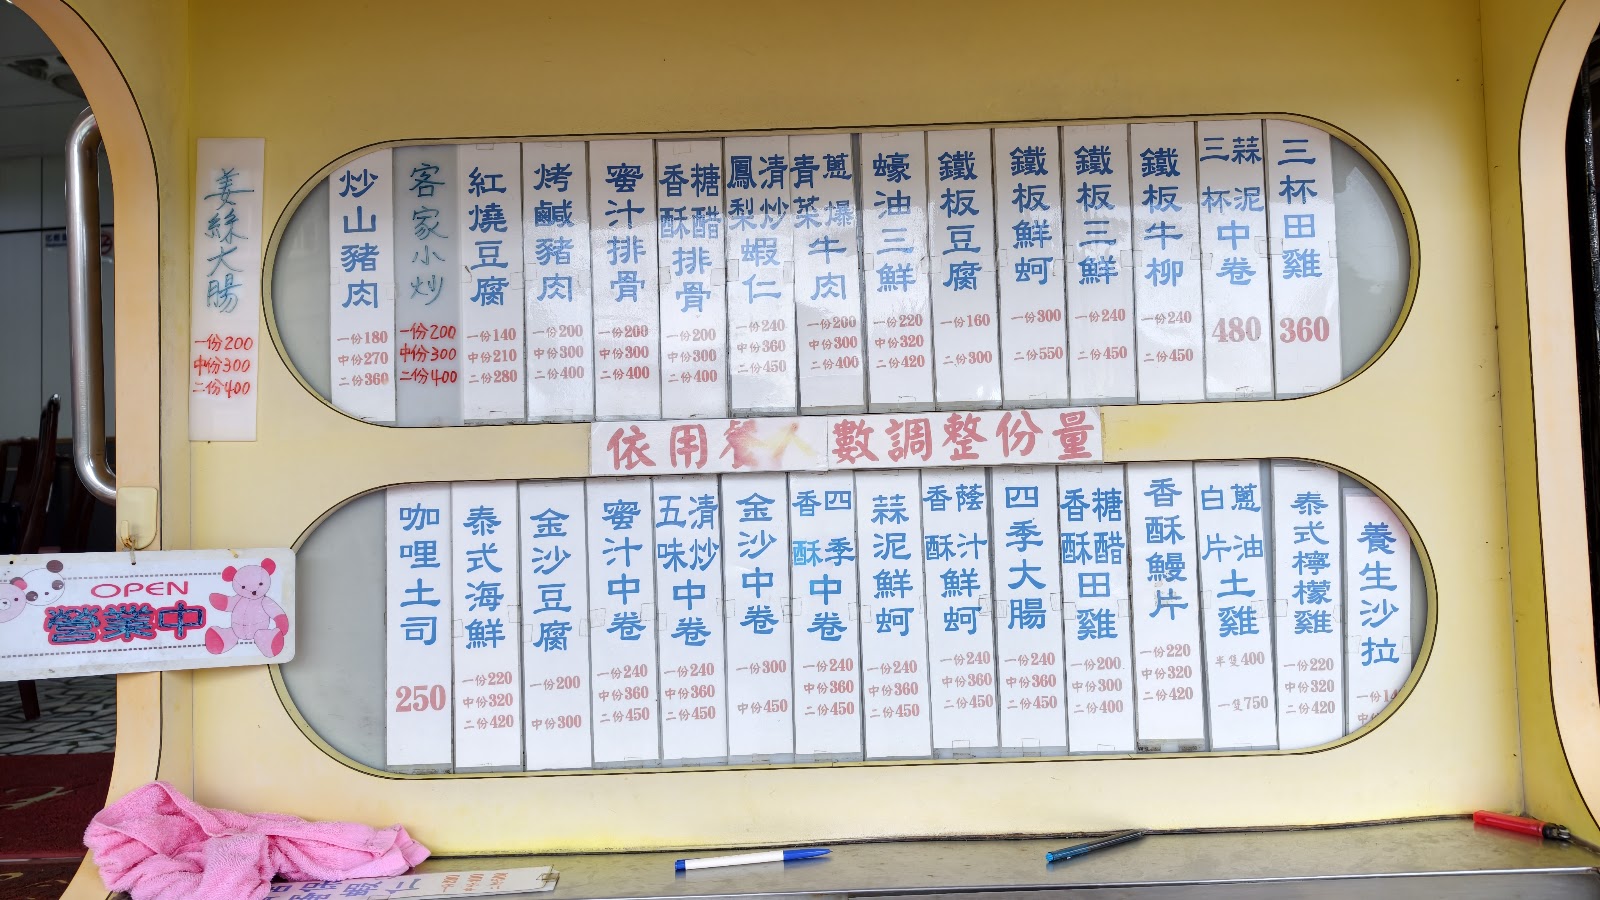 姜絲大腸
一份200
中份300
二份400
炒山豬肉
一份180
中份270
二份360
客家小炒
一份200
中份300
二份400
紅燒豆腐
一份140
中份210
二份280
烤鹹豬肉
一份200
中份300
二份400
蜜汁排骨
一份200
中份300
二份400
糖醋
香酥
排骨
一份200
中份300
二份400
清炒
鳳梨
蝦仁
一份240
中份360
二份450
蔥爆
青菜
牛肉
一份200
中份300
二份400
蠔油三鮮
一份220
中份320
二份420
鐵板豆腐
一份160
二份300
鐵板鮮蚵
一份300
二份550
鐵板三鮮
一份240
二份450
鐵板牛柳
一份240
二份450
蒜泥
三杯
中卷
480
三杯田雞
360
依用餐人數調整份量
咖哩土司
250
泰式海鮮
一份220
中份320
二份420
金沙豆腐
一份200
中份300
蜜汁中卷
一份240
中份360
二份450
清炒
五味
中卷
一份240
中份360
二份450
金沙中卷
一份300
中份450
四季
香酥
中卷
一份240
中份360
二份450
蒜泥鮮蚵
一份240
中份360
二份450
蔭汁
香酥
鮮蚵
一份240
中份360
二份450
四季大腸
一份240
中份360
二份450
糖醋
香酥
田雞
一份200
中份300
二份400
香酥鰻片
一份220
中份320
二份420
蔥油
白片
土雞
半隻400
一隻750
泰式檸檬雞
一份220
中份320
二份420
養生沙拉
OPEN
營業中